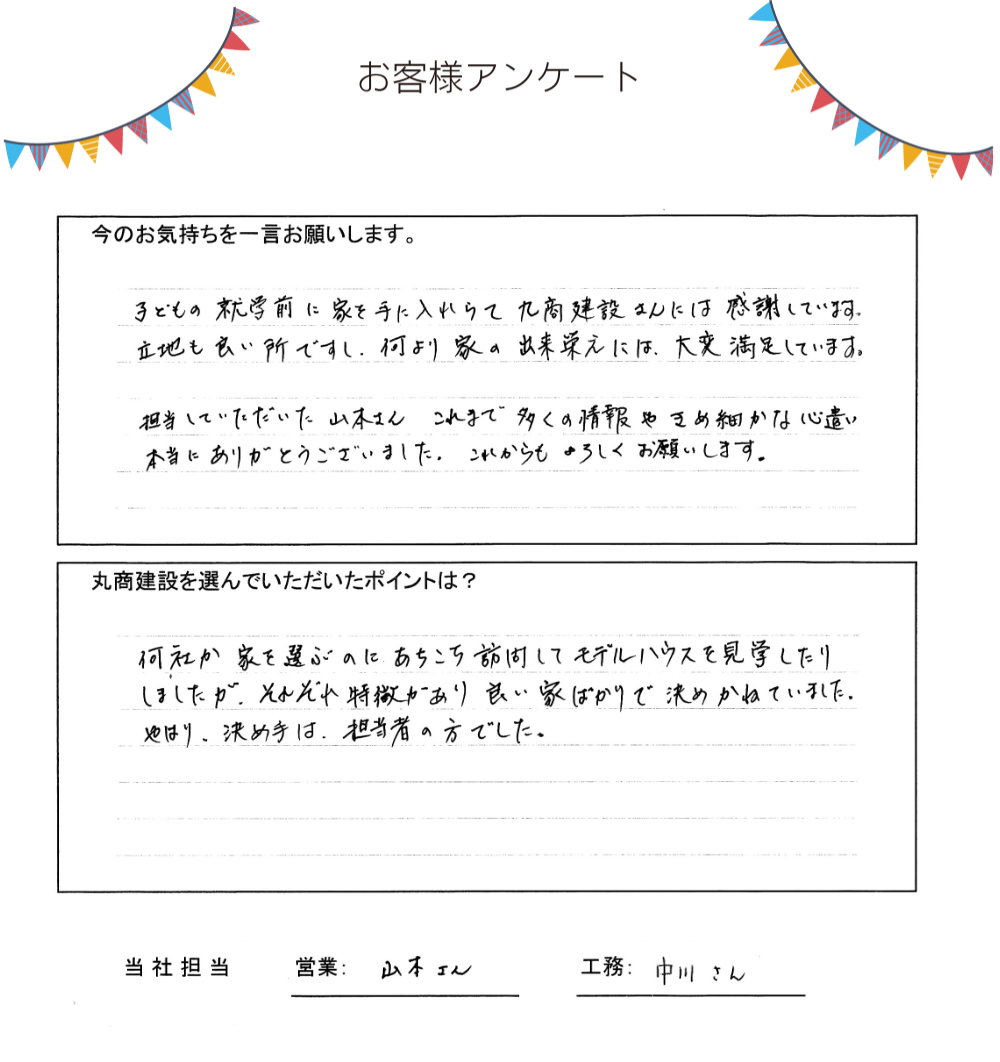 お客様アンケート
今のお気持ちを一言お願いします。
子どもの就学前に家を手に入れらて丸商建設さんには感謝しています。
立地も良い所ですし、何より家の出来栄えには、大変満足しています。
担当していただいた山本さん これまで多くの情報やきめ細かな心遣い
本当にありがとうございました。これからもよろしくお願いします。
丸商建設を選んでいただいたポイントは？
何社か家を選ぶのにあちこち訪問してモデルハウスを見学したり
しましたが、それぞれ特徴があり良い家ばかりで決めかねていました。
やはり、決め手は、担当者の方でした。
当社担当 営業: 山本さん 工務: 中川さん